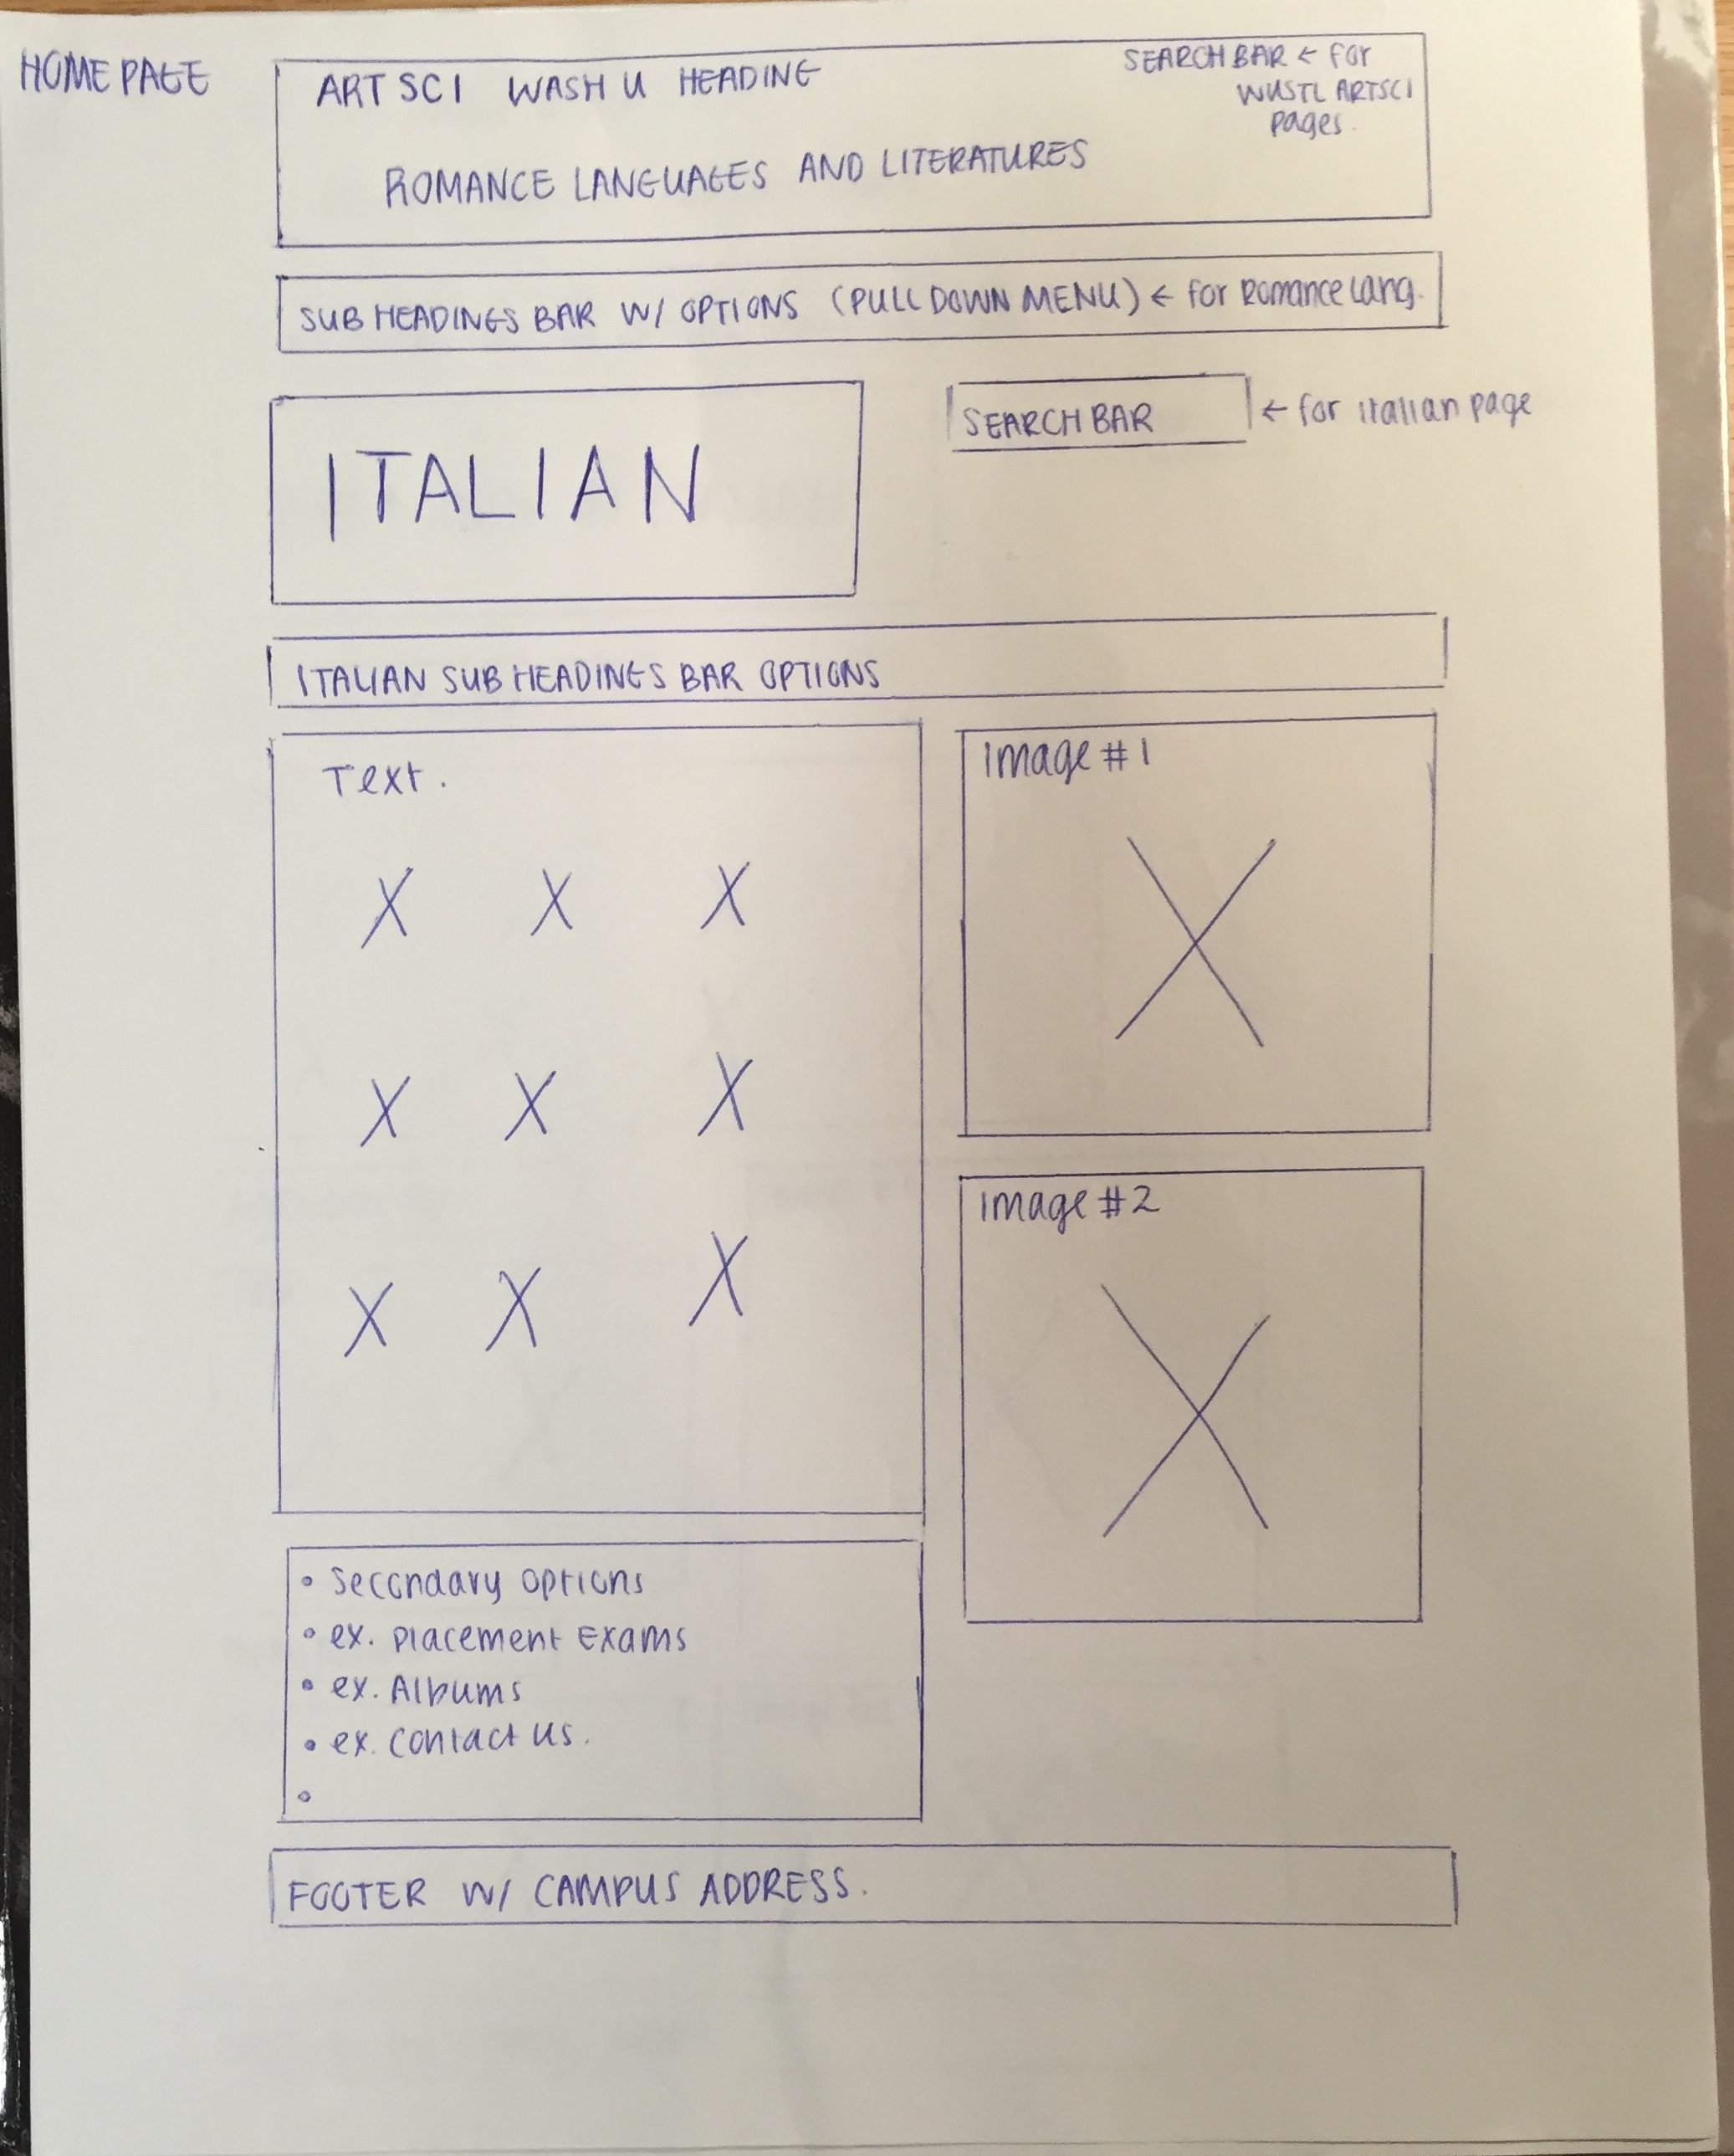 HOME PAGE
ART SCI WASH U HEADING
SEARCH BAR ← for
WUSTL ARTSCI
pages.
ROMANCE LANGUAGES AND LITERATURES
SUB HEADINGS BAR W/ OPTIONS (PULL DOWN MENU) ← for Romance Lang.
ITALIAN
SEARCH BAR ← for italian page
ITALIAN SUB HEADINGS BAR OPTIONS
Text.
X X X
X X X
X X X
Image #1
X
Image #2
X
• Secondary options
• ex. Placement Exams
• ex. Albums
• ex. Contact us.
•
FOOTER W/ CAMPUS ADDRESS.